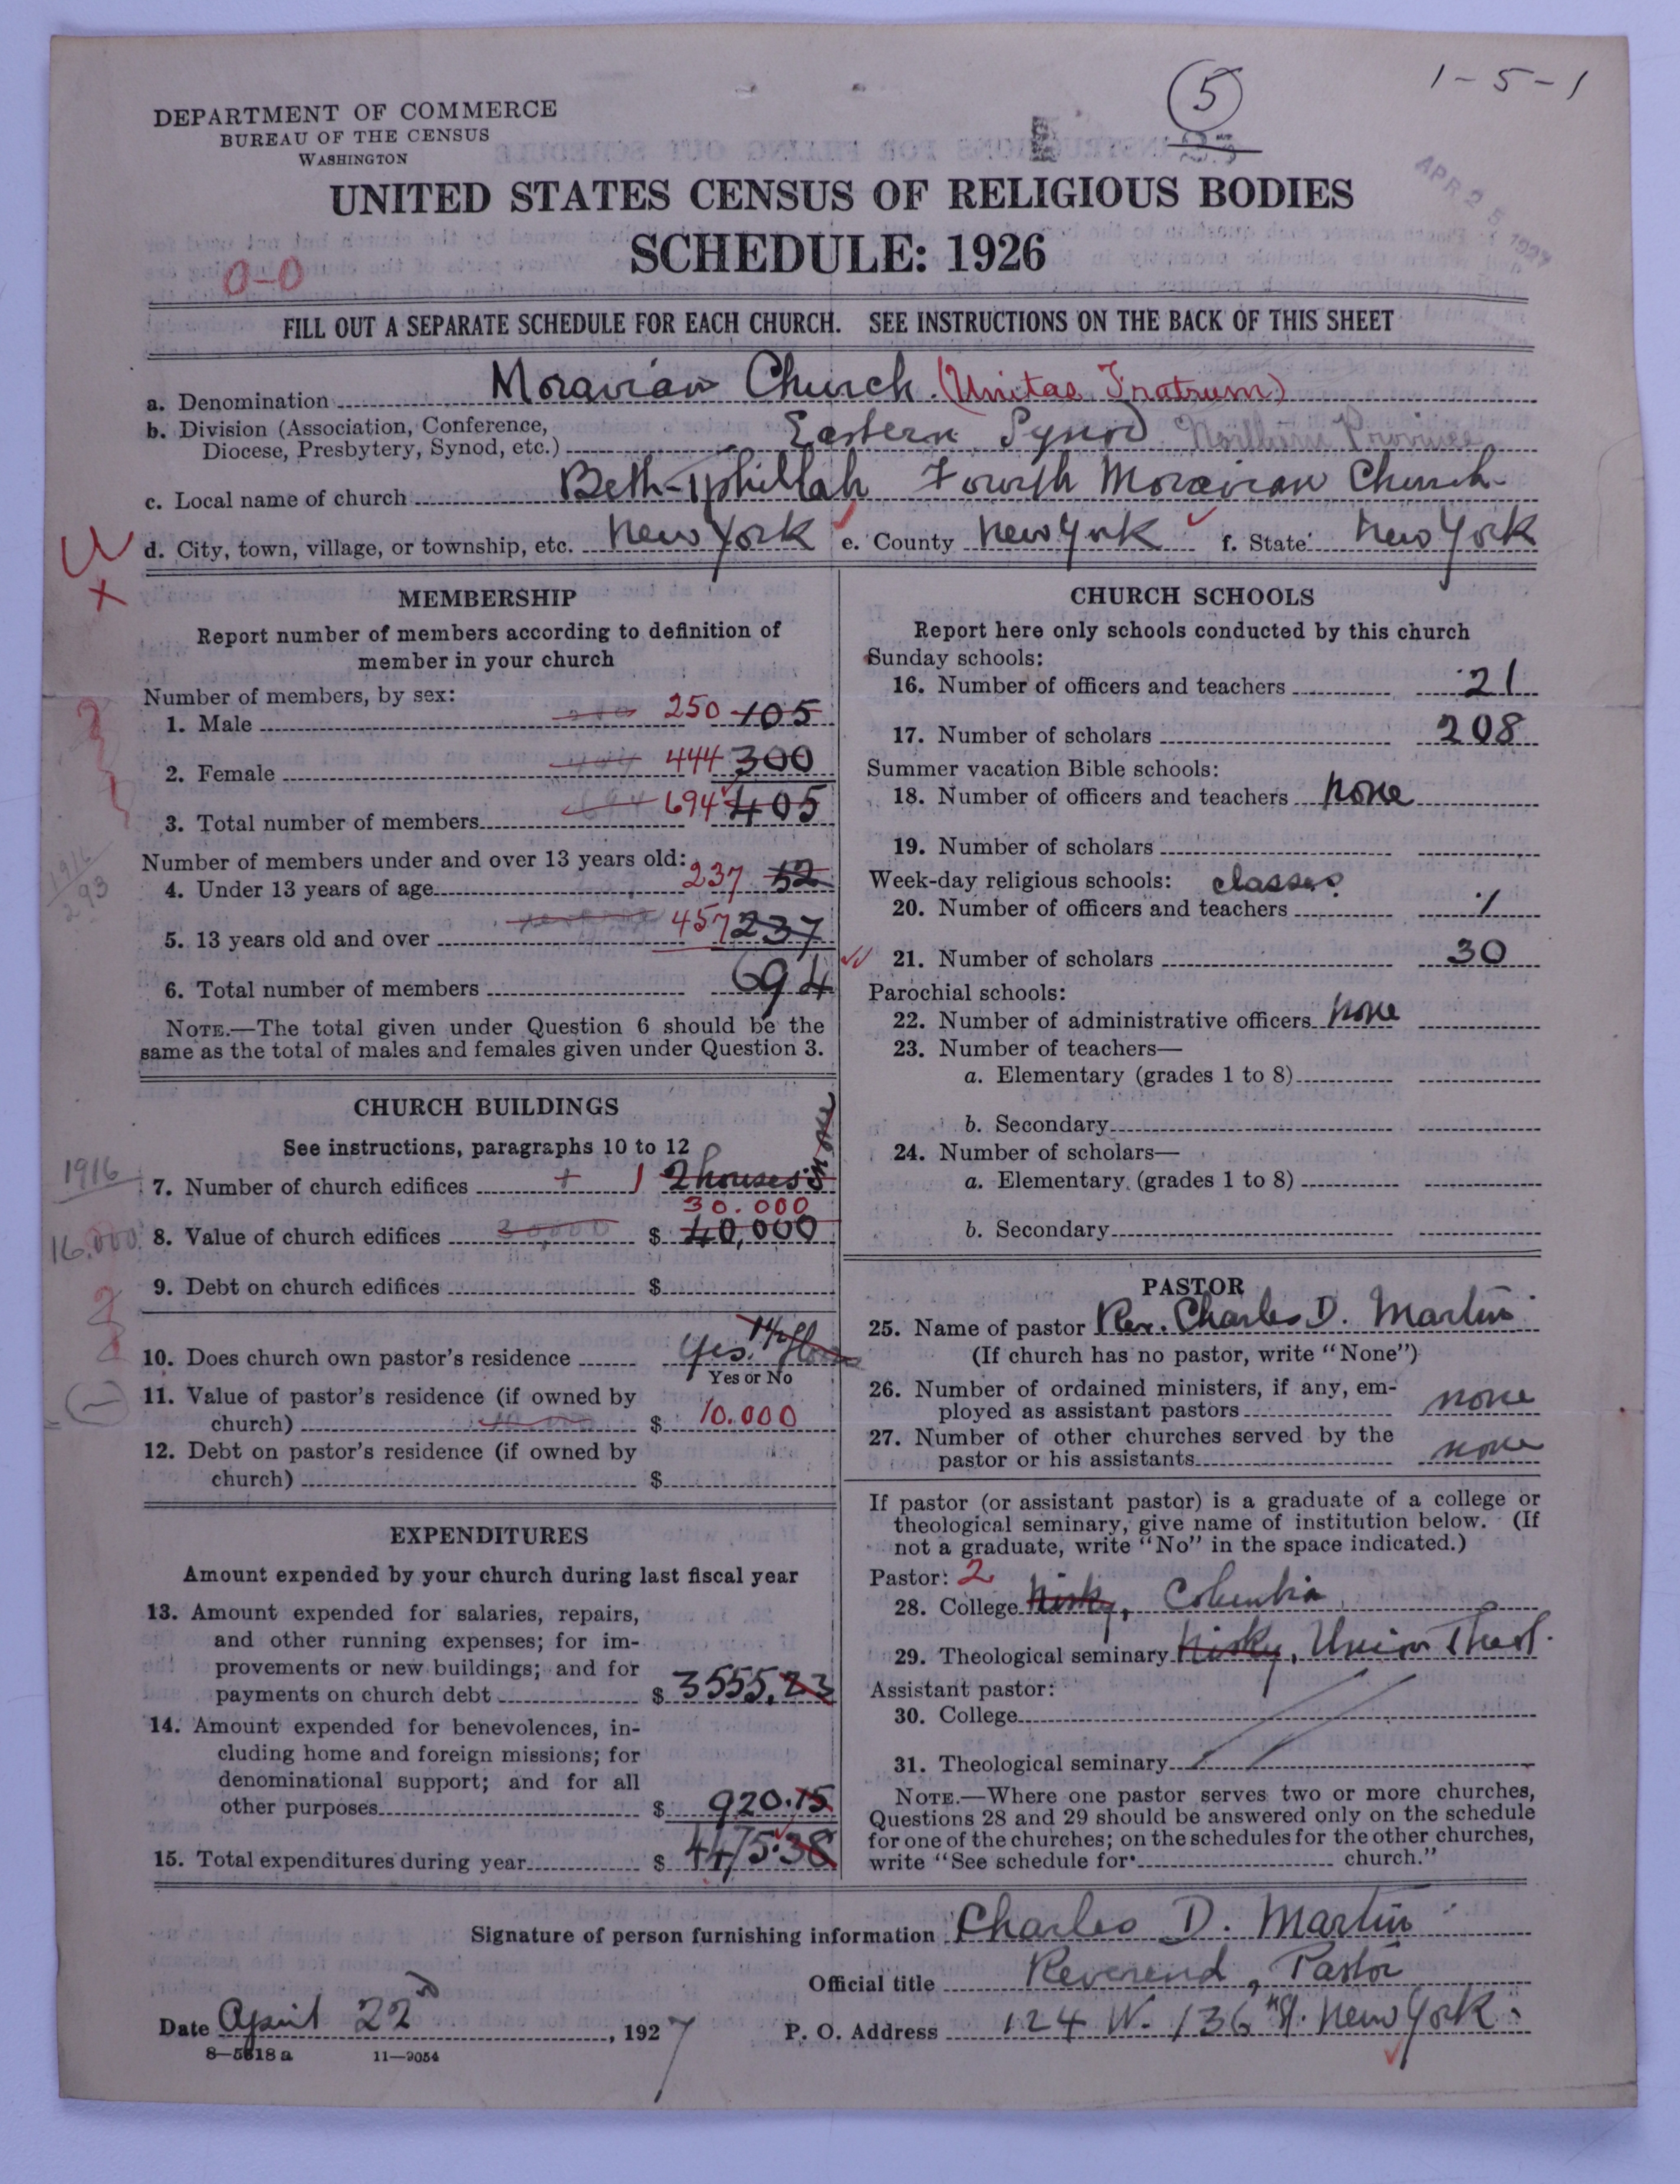 1-5-1
5
DEPARTMENT OF COMMERCE
BUREAU OF THE CENSUS
WASHINGTON
APR 25 1927
UNITED STATES CENSUS OF RELIGIOUS BODIES
SCHEDULE: 1926
0-0
FILL OUT A SEPARATE SCHEDULE FOR EACH CHURCH. SEE INSTRUCTIONS ON THE BACK OF THIS SHEET
a. Denomination Moravian Church. (Unitas Fratrum)
b. Division (Association, Conference,
Diocese, Presbytery, Synod, etc.) Eastern Synod Northern Province
c. Local name of church Beth-Tphillah Fourth Moravian Church
d. City, town, village, or township, etc. New York e. County New York f. State New York
MEMBERSHIP
Report number of members according to definition of
member in your church
Number of members, by sex:
1. Male 250 105
2. Female 444 300
3. Total number of members 694 405
Number of members under and over 13 years old:
4. Under 13 years of age 237 52
1916
293
5. 13 years old and over 457 237
6. Total number of members 694
NOTE.—The total given under Question 6 should be the
same as the total of males and females given under Question 3.
CHURCH BUILDINGS
See instructions, paragraphs 10 to 12
1916
7. Number of church edifices 1 2 houses in one
30.000
16.000 8. Value of church edifices 30,000 $ 40,000
9. Debt on church edifices $
10. Does church own pastor's residence Yes.
Yes or No
11. Value of pastor's residence (if owned by
church) 10.000 $ 10.000
12. Debt on pastor's residence (if owned by
church) $
EXPENDITURES
Amount expended by your church during last fiscal year
13. Amount expended for salaries, repairs,
and other running expenses; for im-
provements or new buildings; and for
payments on church debt $ 3555.23
14. Amount expended for benevolences, in-
cluding home and foreign missions; for
denominational support; and for all
other purposes $ 920.15
15. Total expenditures during year $ 4475.38
CHURCH SCHOOLS
Report here only schools conducted by this church
Sunday schools:
16. Number of officers and teachers 21
17. Number of scholars 208
Summer vacation Bible schools:
18. Number of officers and teachers None
19. Number of scholars
Week-day religious schools: classes
20. Number of officers and teachers 1
21. Number of scholars 30
Parochial schools:
22. Number of administrative officers None
23. Number of teachers—
a. Elementary (grades 1 to 8)
b. Secondary
24. Number of scholars—
a. Elementary (grades 1 to 8)
b. Secondary
PASTOR
25. Name of pastor Rev. Charles D. Martin
(If church has no pastor, write "None")
26. Number of ordained ministers, if any, em-
ployed as assistant pastors none
27. Number of other churches served by the
pastor or his assistants none
If pastor (or assistant pastor) is a graduate of a college or
theological seminary, give name of institution below. (If
not a graduate, write "No" in the space indicated.)
Pastor: 2
28. College Nisky, Columbia
29. Theological seminary Nisky, Union Theol.
Assistant pastor:
30. College
31. Theological seminary
NOTE.—Where one pastor serves two or more churches,
Questions 28 and 29 should be answered only on the schedule
for one of the churches; on the schedules for the other churches,
write "See schedule for church."
Signature of person furnishing information Charles D. Martin
Official title Reverend, Pastor
Date April 22d, 1927 P. O. Address 124 W. 136th St. New York
8-5618 a 11-9054